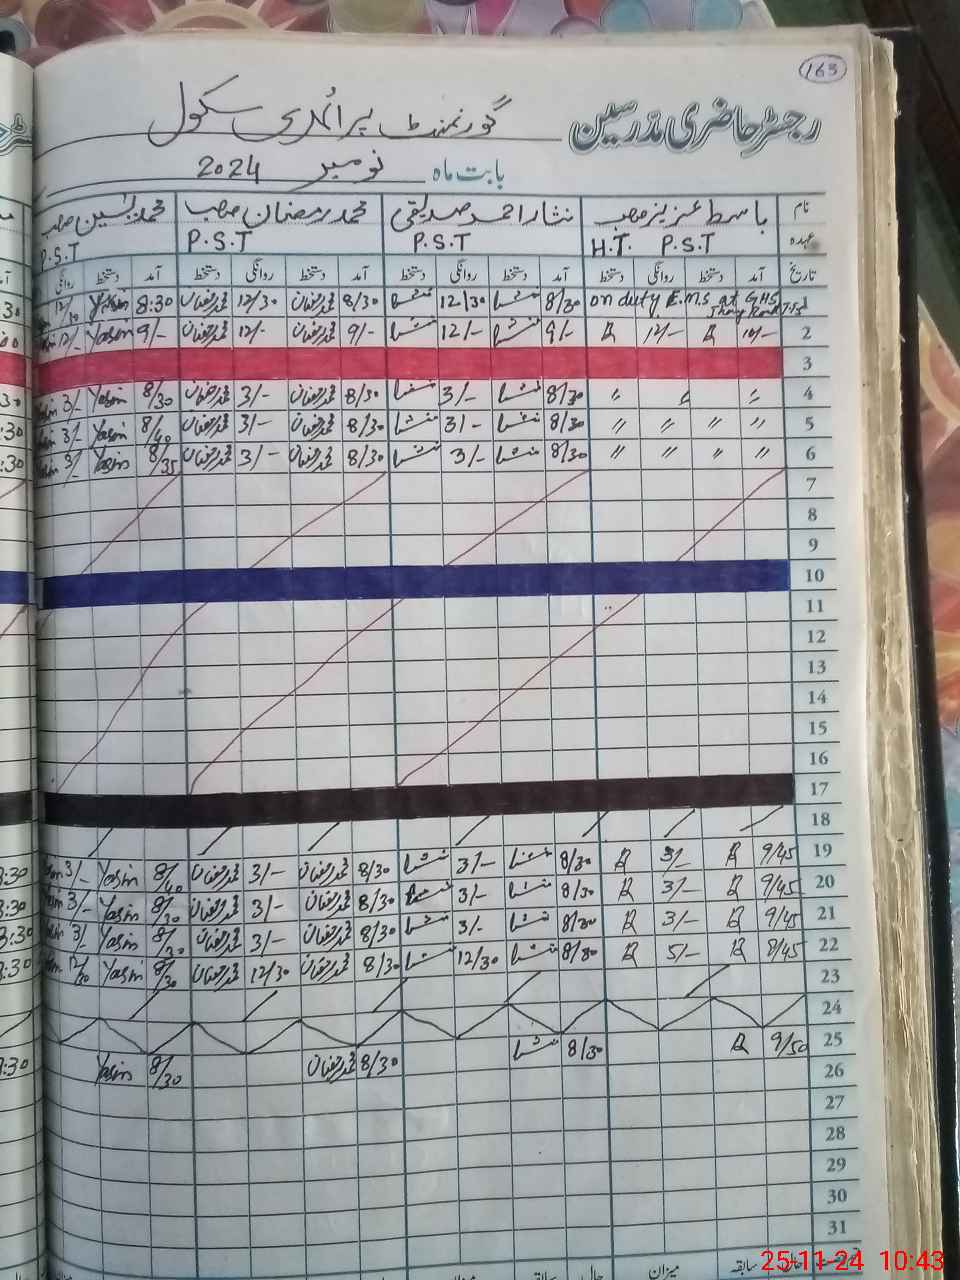 163
رجسٹر حاضری مدرسین گورنمنٹ پرائمری سکول
بابت ماہ نومبر 2024
نام باسط عزیز صاحب نثار احمد صدیقی محمد رمضان صاحب محمد یٰسین صاحب
عہدہ H.T. P.S.T P.S.T P.S.T P.S.T
تاریخ آمد دستخط روانگی دستخط آمد دستخط روانگی دستخط آمد دستخط روانگی دستخط آمد دستخط روانگی
1 on duty E.M.S at G.H.S 8/30 12/30 8/30 محمد رمضان 12/30 محمد رمضان 8:30 Yasin 12/30
2 10/- R 12/- R 9/- 12/- 9/- محمد رمضان 12/- محمد رمضان 9/- Yasin 12/-
3
4 " " " 8/30 3/- 8/30 محمد رمضان 3/- محمد رمضان 8/30 Yasin 3/-
5 " " " " 8/30 3/- 8/30 محمد رمضان 3/- محمد رمضان 8/40 Yasin 3/-
6 " " " " 8/30 3/- 8/30 محمد رمضان 3/- محمد رمضان 8/35 Yasin 3/-
7
8
9
10
11
12
13
14
15
16
17
18
19 9/45 R 3/- R 8/30 3/- 8/30 محمد رمضان 3/- محمد رمضان 8/40 Yasin 3/-
20 9/45 R 3/- R 8/30 3/- 8/30 محمد رمضان 3/- محمد رمضان 8/30 Yasin 3/-
21 9/45 R 3/- R 8/30 3/- 8/30 محمد رمضان 3/- محمد رمضان 8/30 Yasin 3/-
22 8/45 R 5/- R 8/30 12/30 8/30 محمد رمضان 12/30 محمد رمضان 8/30 Yasin 12/30
23
24
25 9/50 R 8/30 8/30 محمد رمضان 8/30 Yasin
26
27
28
29
30
31
حال سابقہ میزان حال سابقہ میزان
25-11-24 10:43